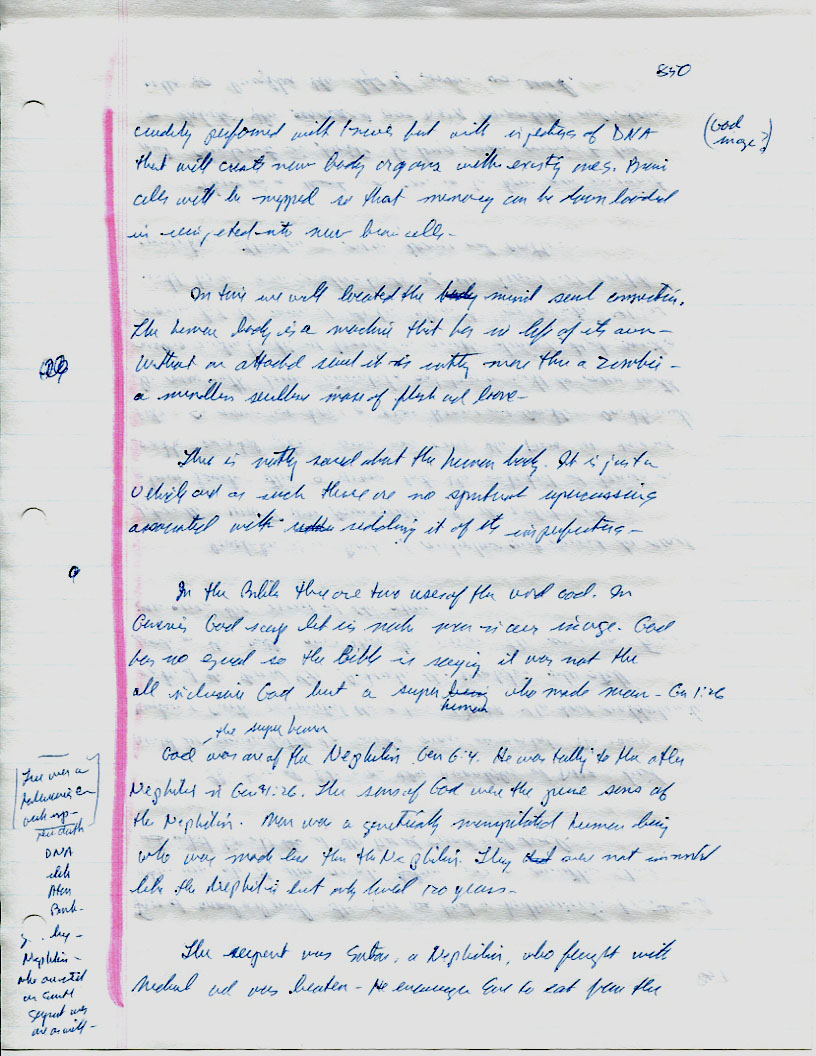 850
(God
image?)
crudely performed with knives but with injections of DNA
that will create new body organs within existing ones. Brain
cells will be mapped so that memory can be downloaded
in new brain cells-
In time we will located the body mind soul connection.
The human body is a machine that has no life of its own-
without an attached soul it is nothing more than a zombie-
a mindless soulless mass of flesh and bone-
There is nothing sacred about the human body. It is just a
vehicle and as such there are no spiritual repercussions
associated with redoing it of its imperfections-
In the Bible there are two uses of the word God. In
Genesis God says let us make man in our image. God
has no equal so the Bible is saying it was not the
all inclusive God but a super being who made man- Gen 1:26
human
the super human
God was one of the Nephilim Gen 6:4. He was talking to the other
Nephilim in Gen 1:26. The sons of God were the sons of
the Nephilim. Man was a genetically manipulated human being
who was made less than the Nephilim. They did were not immortal
like the Nephilim but only lived 120 years-
The serpent was Satan, a Nephilim, who fought with
Michael and was beaten- He encouraged Eve to eat from the
There was a
DNA
with
Nephilim-
who
on earth
serpent was
one as well-